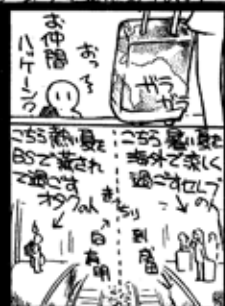 お仲間
ハッケーン?
おっ?
ガラ
ガラ
こちら暑い夏を
海外で楽しく
過ごすセレブ
の人
こちら熱い夏を
BSで蒸され
て過ごす
オタクの人
きっちり
到着
有明